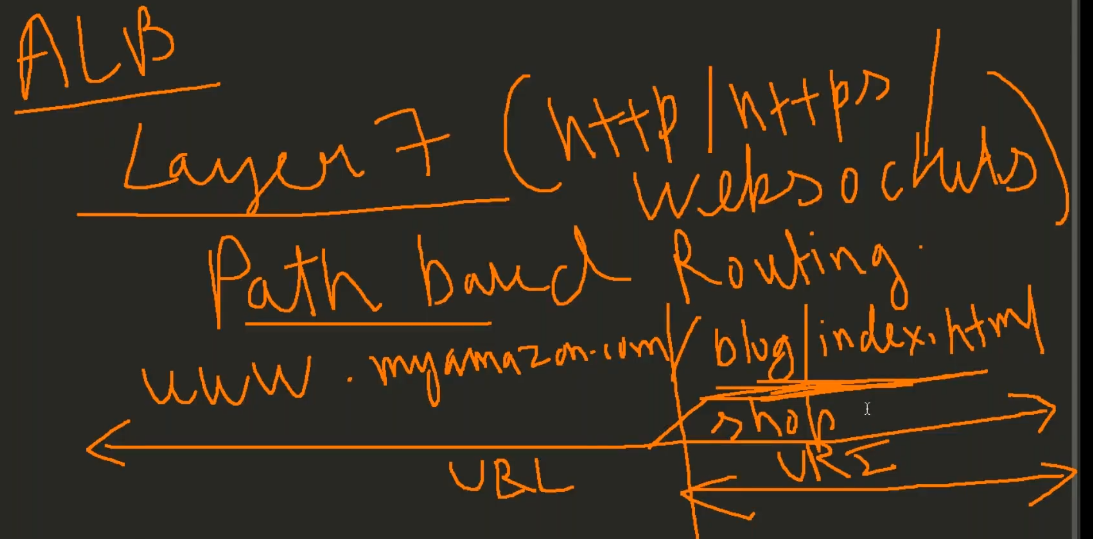 ALB
Layer 7 (http/https/
websockets)
Path based Routing.
www.myamazon.com/blog/index.html
shop
URL
URI